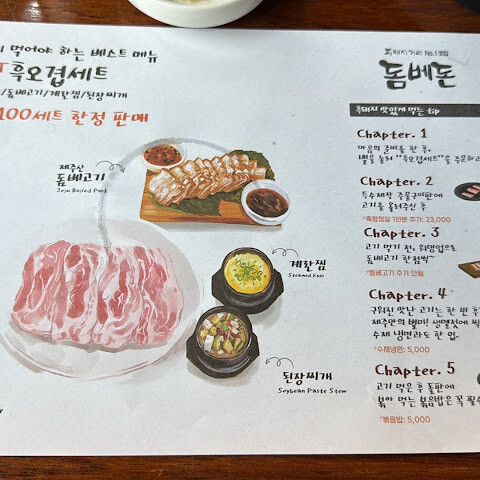 먹어야 하는 베스트 메뉴
흑오겹세트
/돔베고기/계란찜/된장찌개
100세트 한정 판매
제주산
돔베고기
Jeju Boiled Pork
계란찜
Steamed Eggs
된장찌개
Soybean Paste Stew
흑돼지거리 No.1 맛집
돔베돈
흑돼지 맛있게 먹는 tip
Chapter. 1
마음의 준비를 한 후,
벨을 눌러 "흑오겹세트"을 주문하고
Chapter. 2
특수제작 주물구이판에
고기를 올려주신 후
*흑항정살 1인분 추가: 23,000
Chapter. 3
고기 먹기 전, 워밍업으로
돔베고기 한점씩~
*돔베고기 추가 안됨
Chapter. 4
구워진 맛난 고기는 한 번 후
제주만의 별미! 생멜젓에 찍
수제 냉면과도 한 입.
*수제냉면: 5,000
Chapter. 5
고기 먹은 후 돌판에
볶아 먹는 볶음밥은 꼭 필수
*볶음밥: 5,000